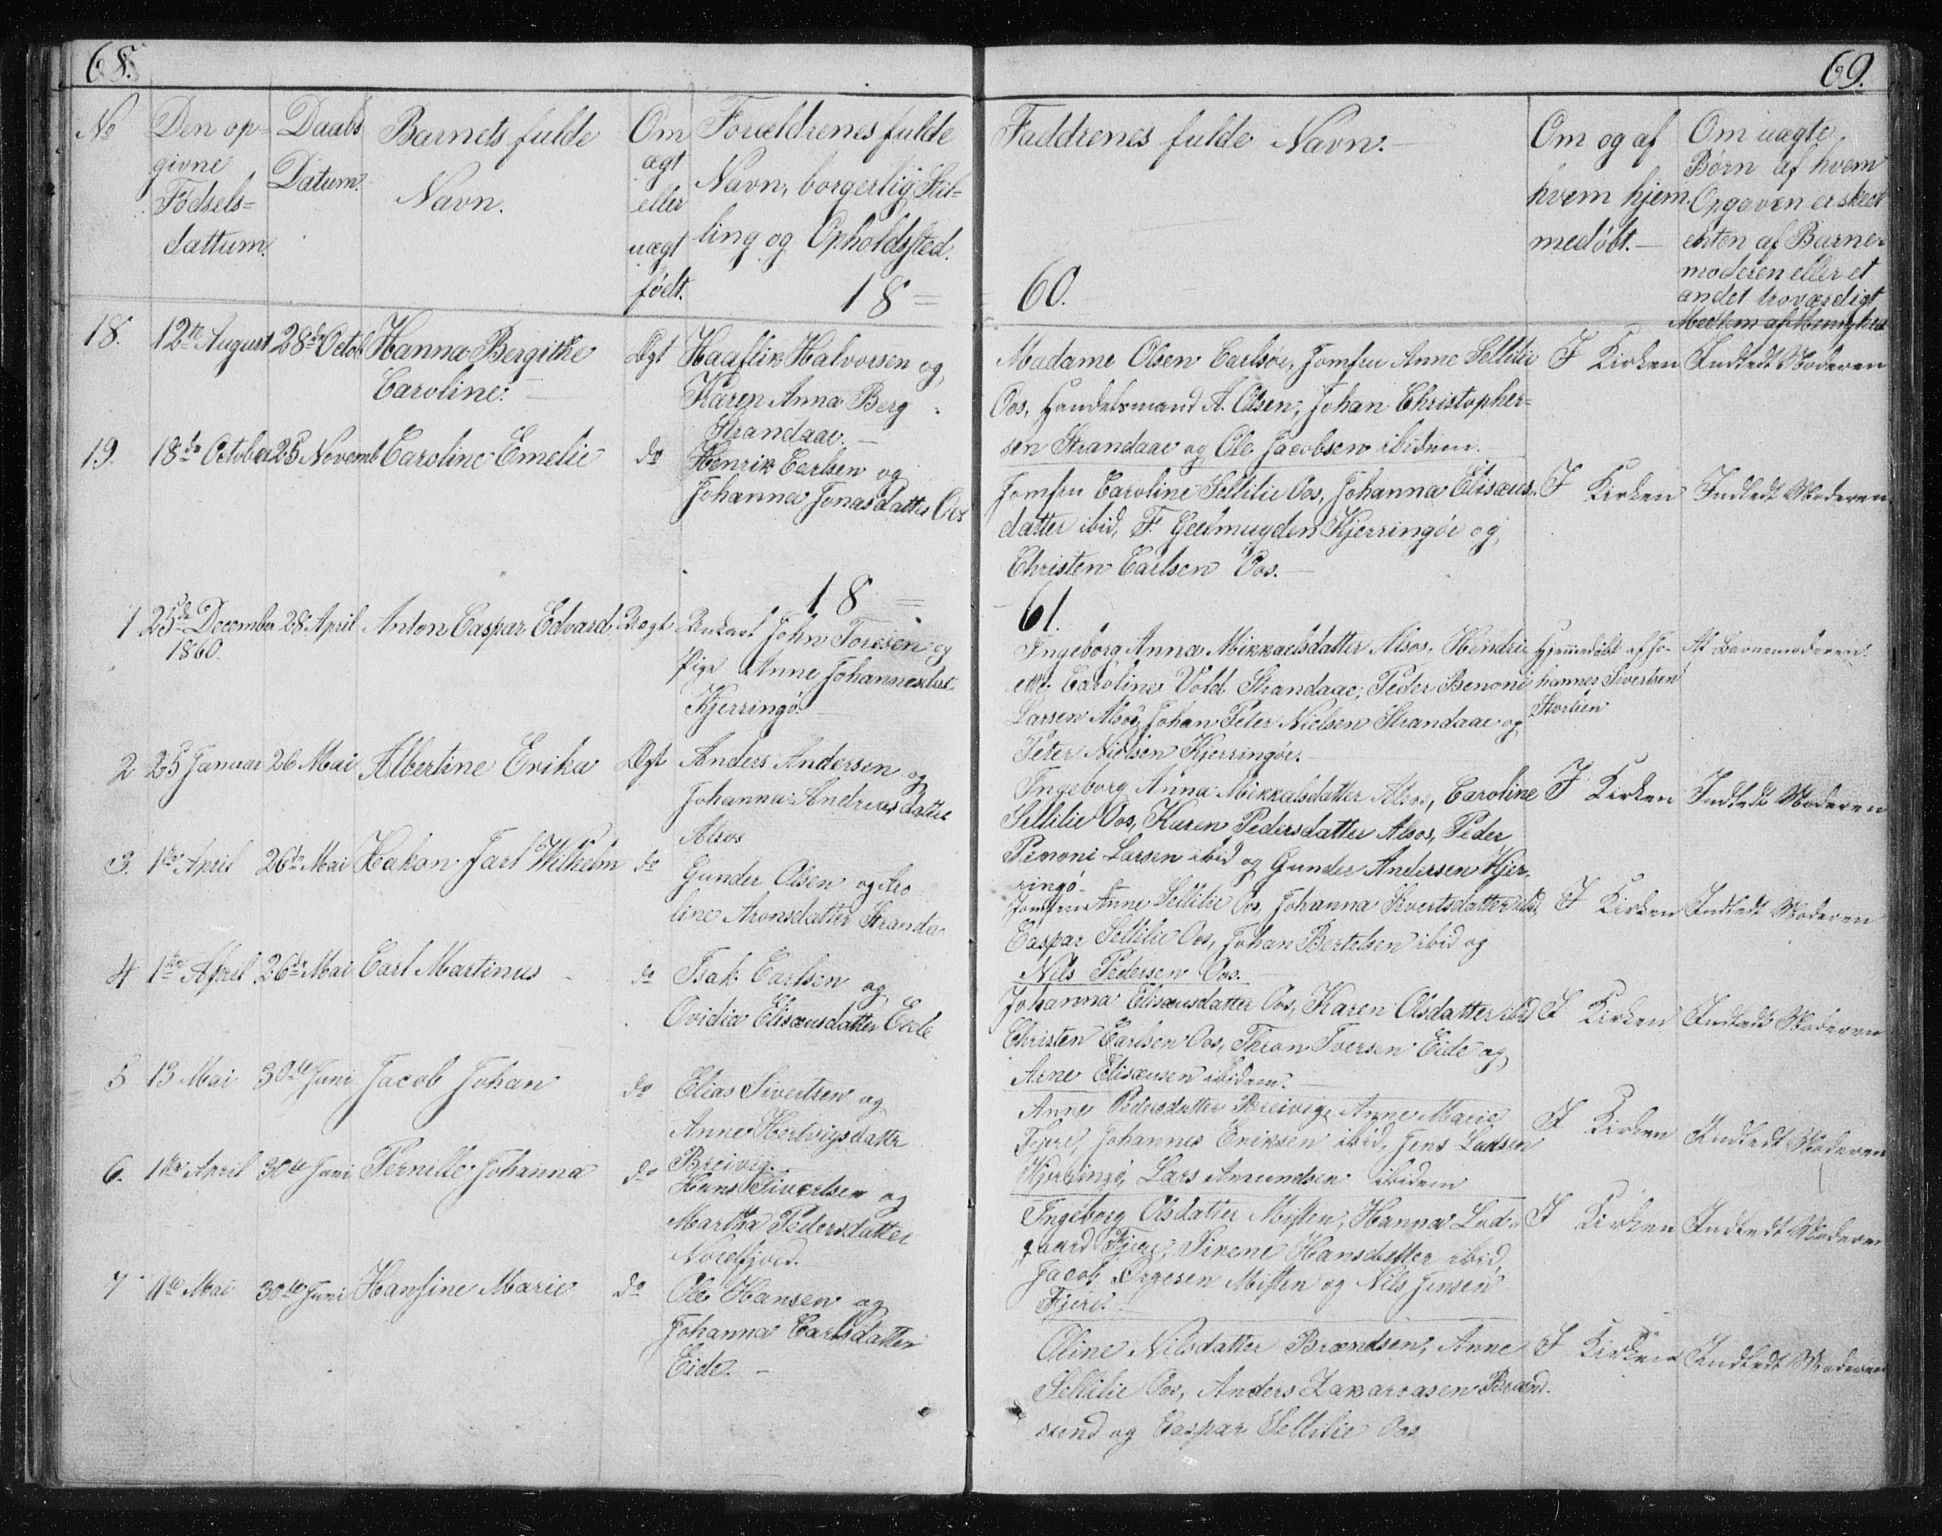 68.
No
Den op-
givne
Fødsels-
dattum.
Daabs
Datum.
Barnets fulde
Navn.
Om
ægt
eller
uægt
født.
Forældrenes fulde
Navn, borgerlig Stil-
ling og Opholdssted.
18 =
18. 12te August 28de Octob Hanna Bergithe Ægt Haaflik Halvorsen og
Caroline. Karen Anna Berg
Strandaae.
19. 18de October 25 Novemb Caroline Emelie do Henrik Carlsen og
Johanna Jonasdatter Oos
18 =
1 25de December 28 April Anton Caspar Edvard Uægt Unkarl John Toresen og
1860. Pige Anne Johannesdat-
Kjerringø.
2 25 Januar 26 Mai Albertine Erika Ægt Anders Andersen og
Johanna Andreasdatter
Alsos
3. 1ste April 26de Mai Hakon Jarl Wilhelm do Gunder Olsen og Aro
line Aronsdatter Stranda
4 1ste April 26de Mai Carl Martinus do Isak Carlsen og
Ovidia Elisæusdatter Eide
5 13 Mai 30te Juni Jacob Johan do Elias Sivertsen og
Anne Hertvigsdatter
Breivig.
6. 1ste April 30te Juni Pernille Johanna do Hans Sivertsen og
Martha Pedersdatter
Nordfjord.
7 11te Mai 30te Juni Hansine Marie do Ole Hansen og
Johanna Carlsdatter
Eide.
69.
Faddrenes fulde Navn.
Om og af
hvem hjem
medøbt.
Om uægte
Børn af hvem
Opgaven er skeet
enten af Barne-
moderen eller et
andet troværdigt
60.
Madame Olsen Carlsøe, Jomfru Anne Sellilie I Kirken Indledt Moderen
Oos, Handelsmand A. Olsen, Johan Christopher-
sen Strandaae og Ole Jacobsen ibidem.
Jomfru Caroline Sellilie Oos, Johanna Elisæus- I Kirken Indledt Moderen
datter ibid, F. Geelmuyden Kjerringøe og
Christen Carlsen Oos.
61.
Ingeborg Anna Mikkaelsdatter Alsos, Hendri- Hjemmedøbt af Jo- Af Barnemoderen.
ette Caroline Vold Strandaae, Peder Benoni hannes Sivertsen
Larsen Alsos, Johan Peter Nielsen Strandaae og Storlien
Peter Nielsen Kjerringøe.
Ingeborg Anna Mikkalsdatter Alsos, Caroline I Kirken Indledt Moderen
Sellilie Oos, Karen Pedersdatter Alsos, Peder
Penoni Larsen ibid og Gunder Andersen Kjer-
ringø.
Jomfru Anne Sellilie Oos, Johanna Sivertsdatter ibid, I Kirken Indledt Moderen
Caspar Sellilie Oos, Johan Bertelsen ibid og
Nils Pedersen Oos.
Johanna Elisæusdatter Oos, Karen Olsdatter ibid I Kirken Indledt Moderen
Christen Carlsen Oos, Thron Iversen Eide og
Arne Elisæusen ibidem.
Anne Pedersdatter Breivig, Anne Marie I Kirken Indledt Moderen
Fjære, Johannes Eriksen ibid, Jens Ladsen
Kjerringø, Lars Amundsen ibidem
Ingeborg Olsdatter Misten, Hanna Lod- I Kirken Indledt Moderen
gaard Fjære, Sirene Hansdatter ibid,
Jacob Ørgesen Misten og Nils Jensen
Fjære.
Oline Nilsdatter Brændsen, Anne I Kirken Indledt Moderen
Sellilie Oos, Anders Zakariasen Brænd-
send og Caspar Sellilie Oos